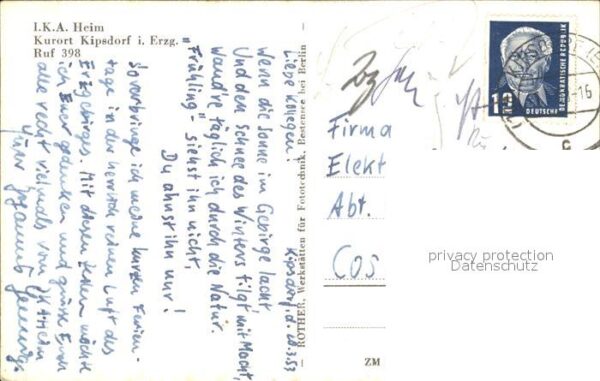 I.K.A. Heim
Kurort Kipsdorf i. Erzg.
Ruf 398
Kipsdorf, d. 20.3.53
Liebe Kollegen!
Wenn die Sonne im Gebirge lacht
Und den Schnee des Winters tilgt mit Macht,
Wandre täglich ich durch die Natur.
"Frühling" – siehst ihn nicht,
Du ahnst ihn nur!
So verbringe ich meine kurzen Ferien-
tage in der herrlich reinen Luft des
Erzgebirges. Mit diesen Zeilen möchte
ich Euer gedenken und grüsse Euch
alle recht vielmals vom IKA-Heim
Euer Johannes
ROTHER, Werkstätten für Fototechnik, Bestensee bei Berlin
ZM
DEUTSCHE
DEMOKRATISCHE REPUBLIK
12
-16
c
Firma
Elekt
Abt.
Cos
privacy protection
Datenschutz